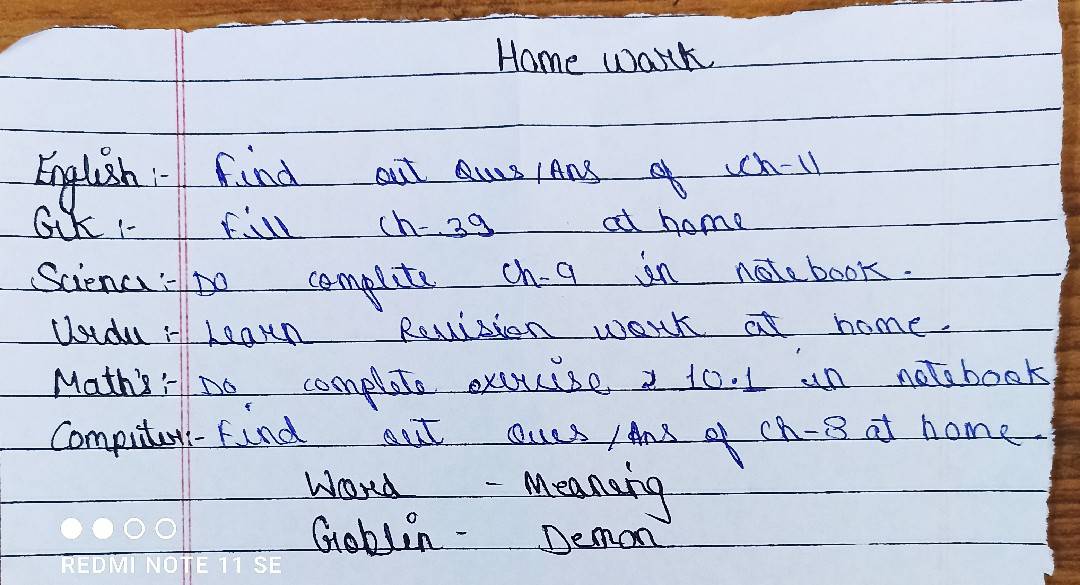 Home work
English :- Find out Ques/Ans of Ch-11
G.K :- Fill Ch-39 at home
Science :- Do complete Ch-9 in notebook.
Urdu :- Learn Revision work at home.
Math's :- Do complete exercise 10.1 in notebook
Computer :- Find out Ques/Ans of Ch-8 at home.
Word - Meaning
Goblin - Demon
REDMI NOTE 11 SE